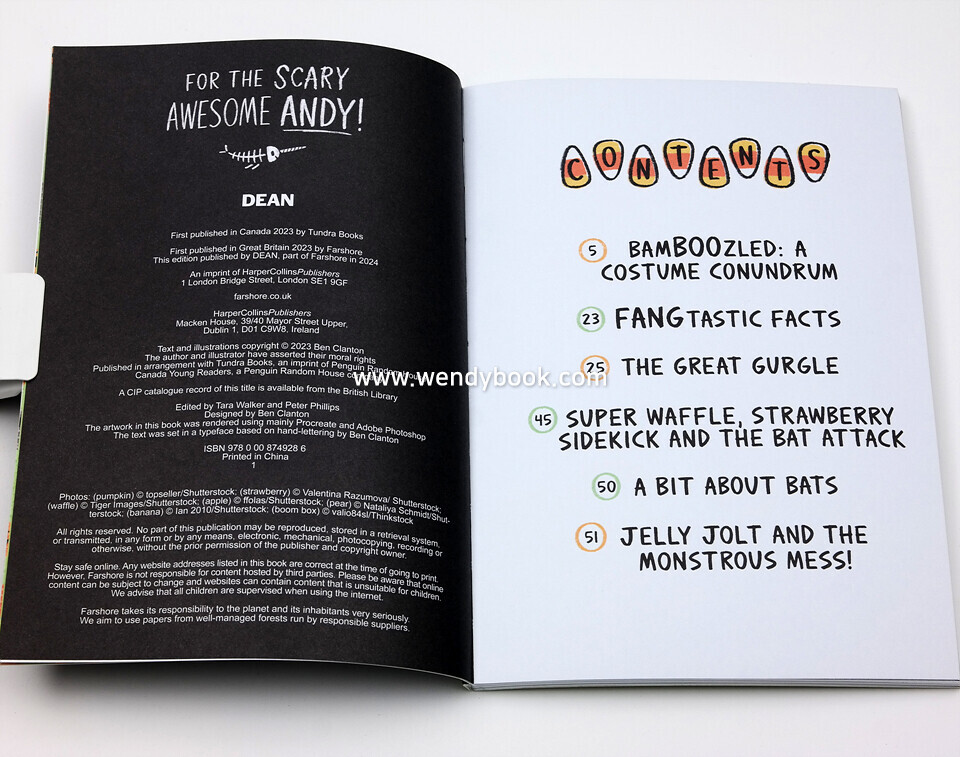 FOR THE SCARY
AWESOME ANDY!
DEAN
First published in Canada 2023 by Tundra Books
First published in Great Britain 2023 by Farshore
This edition published by DEAN, part of Farshore in 2024
An imprint of HarperCollinsPublishers
1 London Bridge Street, London SE1 9GF
farshore.co.uk
HarperCollinsPublishers
Macken House, 39/40 Mayor Street Upper,
Dublin 1, D01 C9W8, Ireland
Text and illustrations copyright © 2023 Ben Clanton
The author and illustrator have asserted their moral rights
Published in arrangement with Tundra Books, an imprint of Penguin Random
Canada Young Readers, a Penguin Random House
A CIP catalogue record of this title is available from the British Library
Edited by Tara Walker and Peter Phillips
Designed by Ben Clanton
The artwork in this book was rendered using mainly Procreate and Adobe Photoshop
The text was set in a typeface based on hand-lettering by Ben Clanton
ISBN 978 0 00 874928 6
Printed in China
1
Photos: (pumpkin) © topseller/Shutterstock; (strawberry) © Valentina Razumova/ Shutterstock;
(waffle) © Tiger Images/Shutterstock; (apple) © ffolas/Shutterstock; (pear) © Nataliya Schmidt/Shut-
terstock; (banana) © Ian 2010/Shutterstock; (boom box) © valio84sl/Thinkstock
All rights reserved. No part of this publication may be reproduced, stored in a retrieval system,
or transmitted, in any form or by any means, electronic, mechanical, photocopying, recording or
otherwise, without the prior permission of the publisher and copyright owner.
Stay safe online. Any website addresses listed in this book are correct at the time of going to print.
However, Farshore is not responsible for content hosted by third parties. Please be aware that online
content can be subject to change and websites can contain content that is unsuitable for children.
We advise that all children are supervised when using the internet.
Farshore takes its responsibility to the planet and its inhabitants very seriously.
We aim to use papers from well-managed forests run by responsible suppliers.
CONTENTS
5 BAMBOOZLED: A
COSTUME CONUNDRUM
23 FANGTASTIC FACTS
25 THE GREAT GURGLE
45 SUPER WAFFLE, STRAWBERRY
SIDEKICK AND THE BAT ATTACK
50 A BIT ABOUT BATS
51 JELLY JOLT AND THE
MONSTROUS MESS!
www.wendybook.com